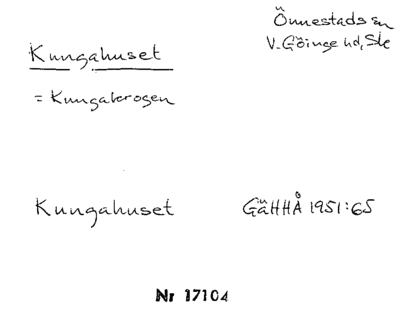 Kungahuset
Önnestads sn
V. Göinge hd, Sk
= Kungakrogen
Kungahuset GäHHÅ 1951:65
Nr 17104